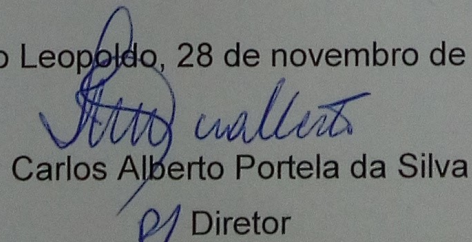 o Leopoldo, 28 de novembro de
Carlos Alberto Portela da Silva
p/ Diretor